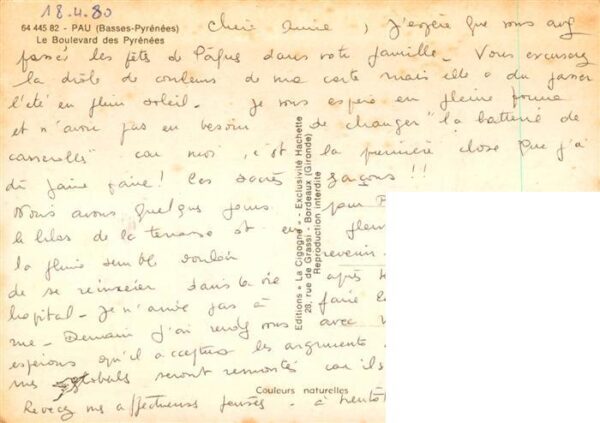 18.4.80
64 445 82 - PAU (Basses-Pyrénées)
Le Boulevard des Pyrénées
Chère Annie, J'espère que vous avez
passé les fêts de Pâques dans votre famille. Vous excuserez
la drôle de couleurs de ma carte mais elle a du passer
l'été en plein soleil. Je vous espère en pleine forme
et n'avoir pas eu besoin de changer "la batterie de
casseroles" car moi, c'est la première chose que j'ai
dû faire faire! Ces sacrés garçons!!
Nous avons quelques jours
le lilas de la terrasse est en fleur
la pluie semble vouloir revenir.
de se réinsérer dans la vie après
hopital. Je n'arrive pas à faire
me. Demain j'ai rendez vous avec
espérons qu'il acceptera les arguments
mes globules seront remontés car ils
Recevez mes affectueuses pensées. à bientôt
Editions « La Cigogne » - Exclusivité Hachette
28, rue de Grassi - Bordeaux (Gironde)
Reproduction interdite
Couleurs naturelles